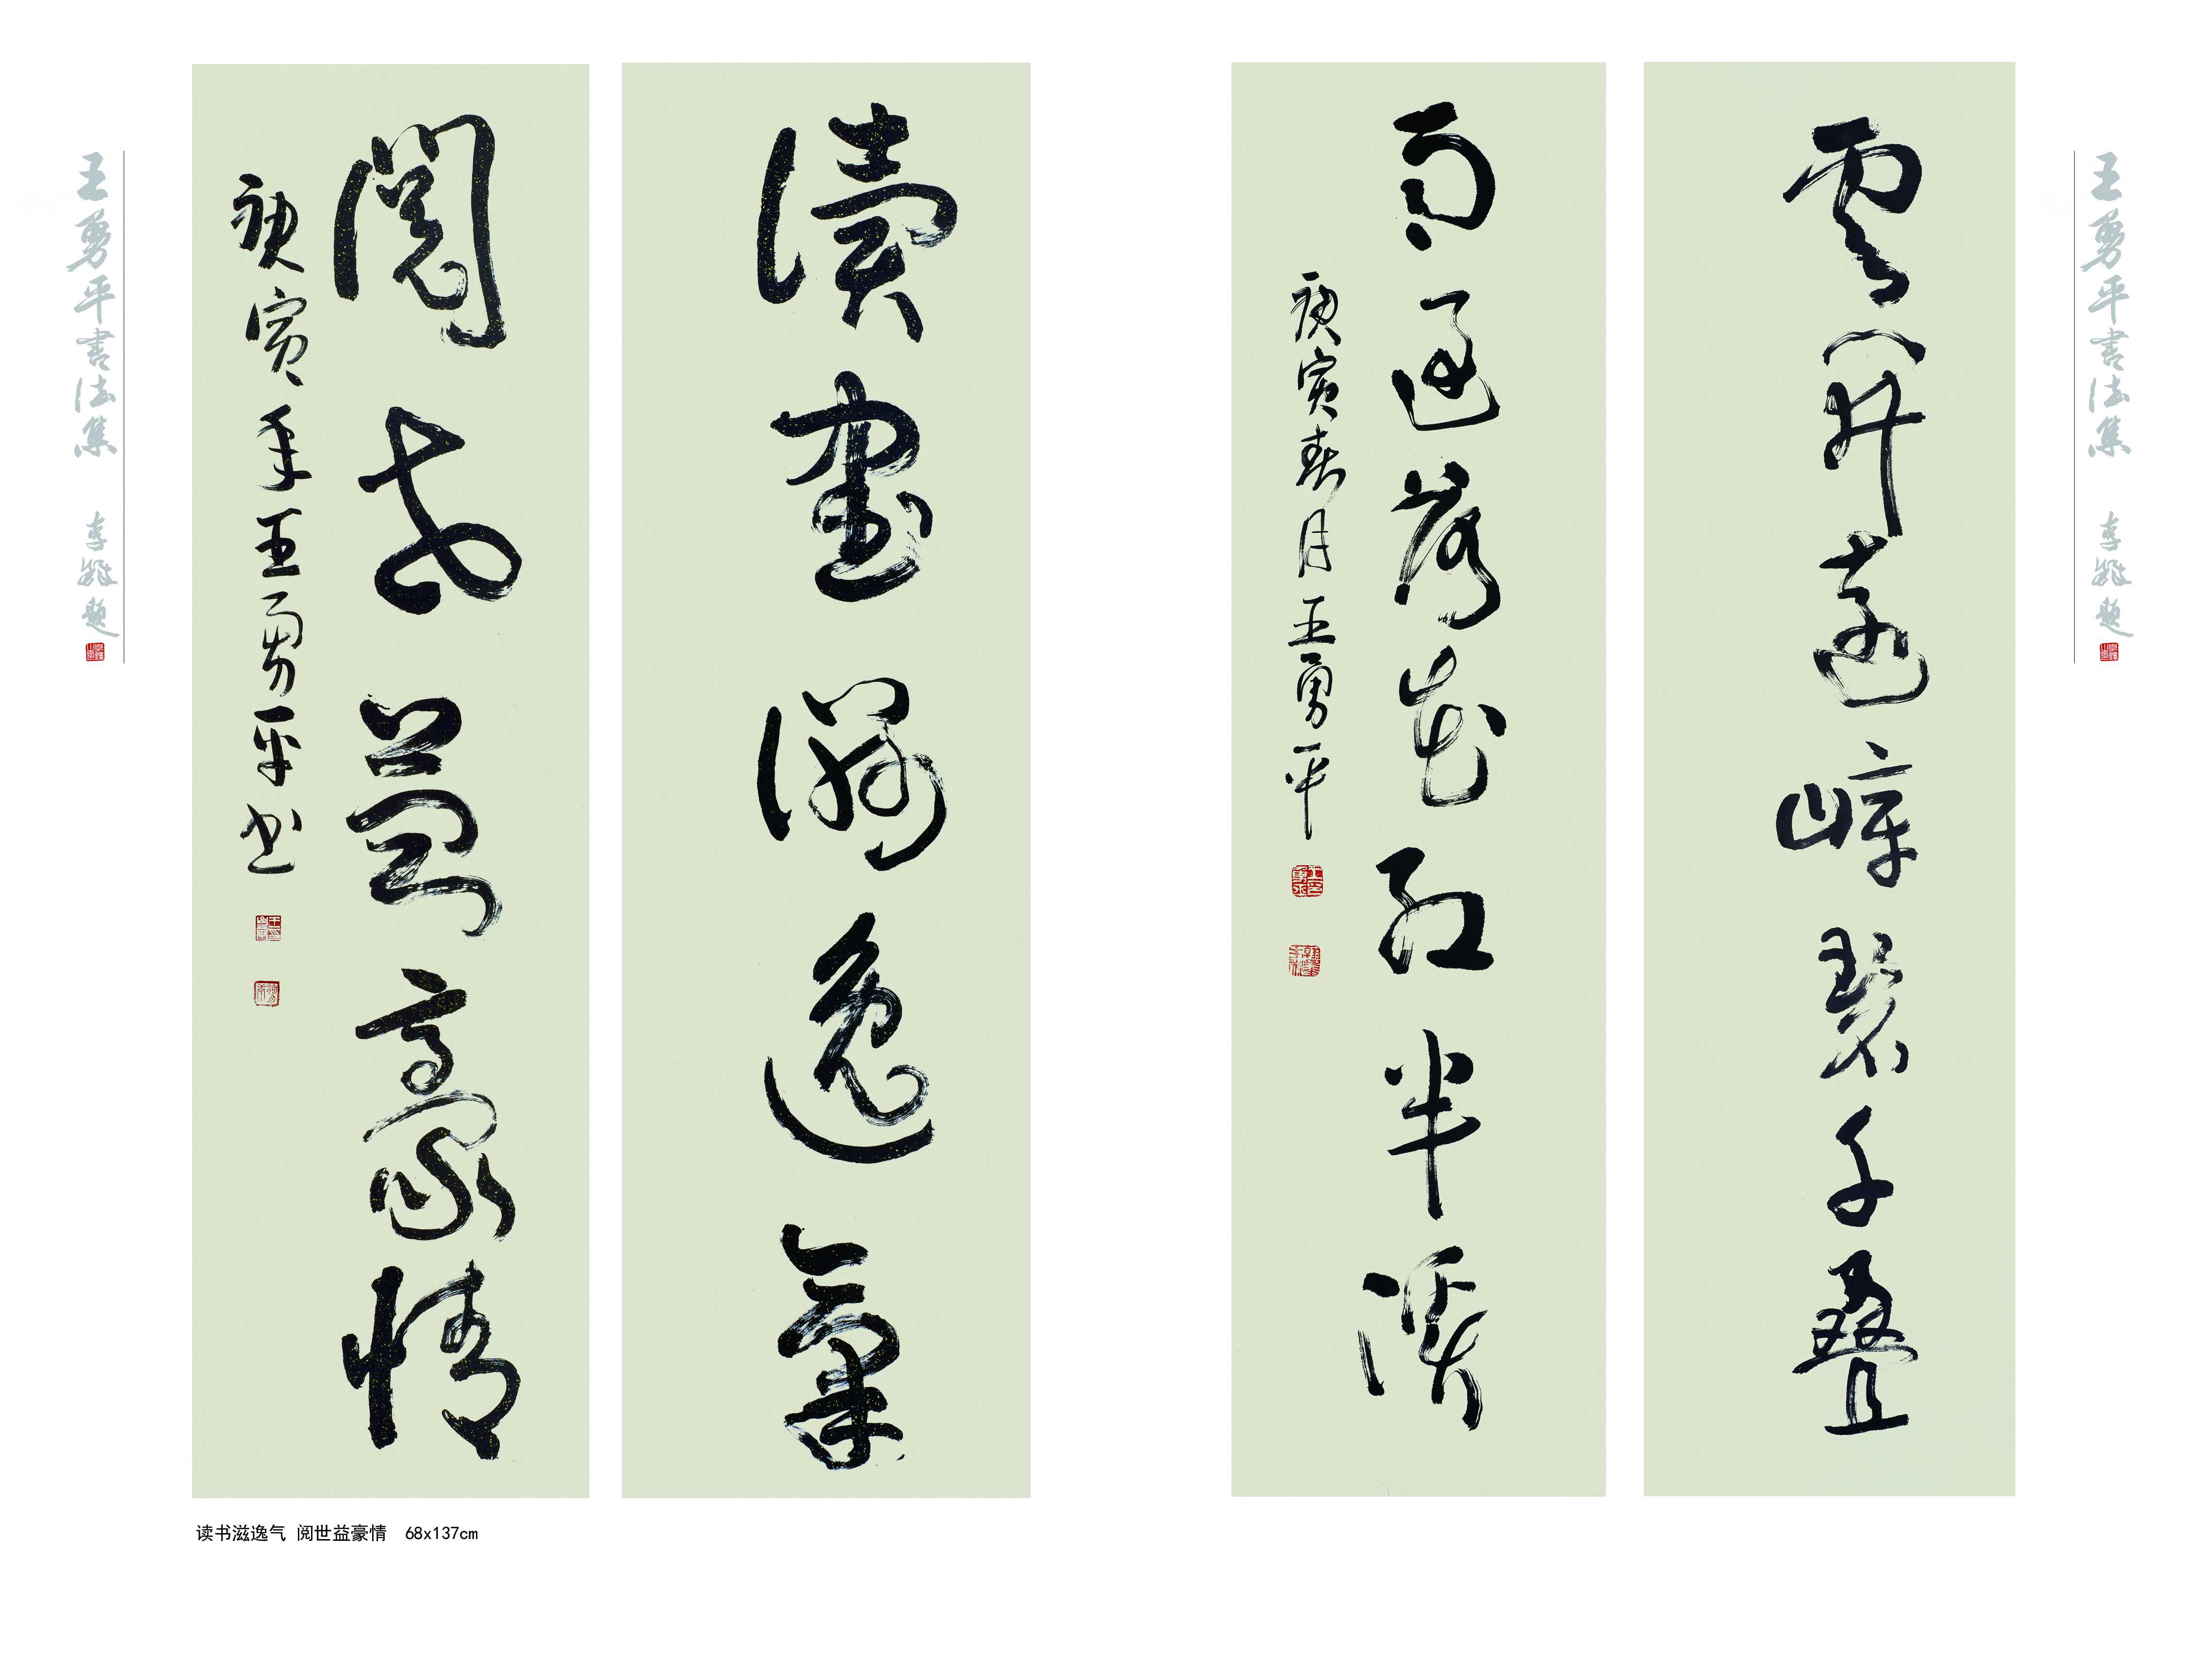 王勇平書法集
雲開遠嶂碧千疊
雨過落花紅半溪
庚寅春月王勇平
讀書滋逸氣
閱世益豪情
庚寅年王勇平书
王勇平書法集
读书滋逸气 阅世益豪情 68x137cm